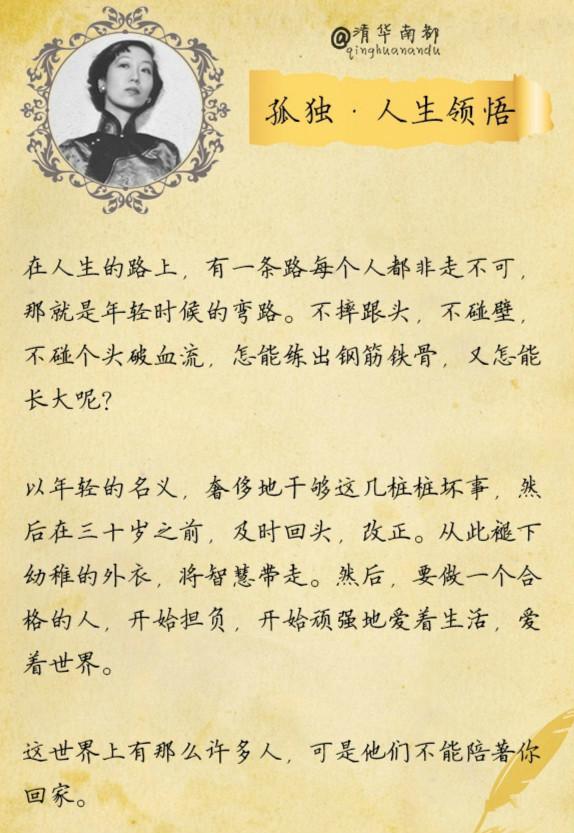 @清华南都
qinghuanandu
孤独·人生领悟
在人生的路上，有一条路每个人都非走不可，
那就是年轻时候的弯路。不摔跟头，不碰壁，
不碰个头破血流，怎能练出钢筋铁骨，又怎能
长大呢？
以年轻的名义，奢侈地干够这几桩桩坏事，然
后在三十岁之前，及时回头，改正。从此褪下
幼稚的外衣，将智慧带走。然后，要做一个合
格的人，开始担负，开始顽强地爱着生活，爱
着世界。
这世界上有那么许多人，可是他们不能陪著你
回家。